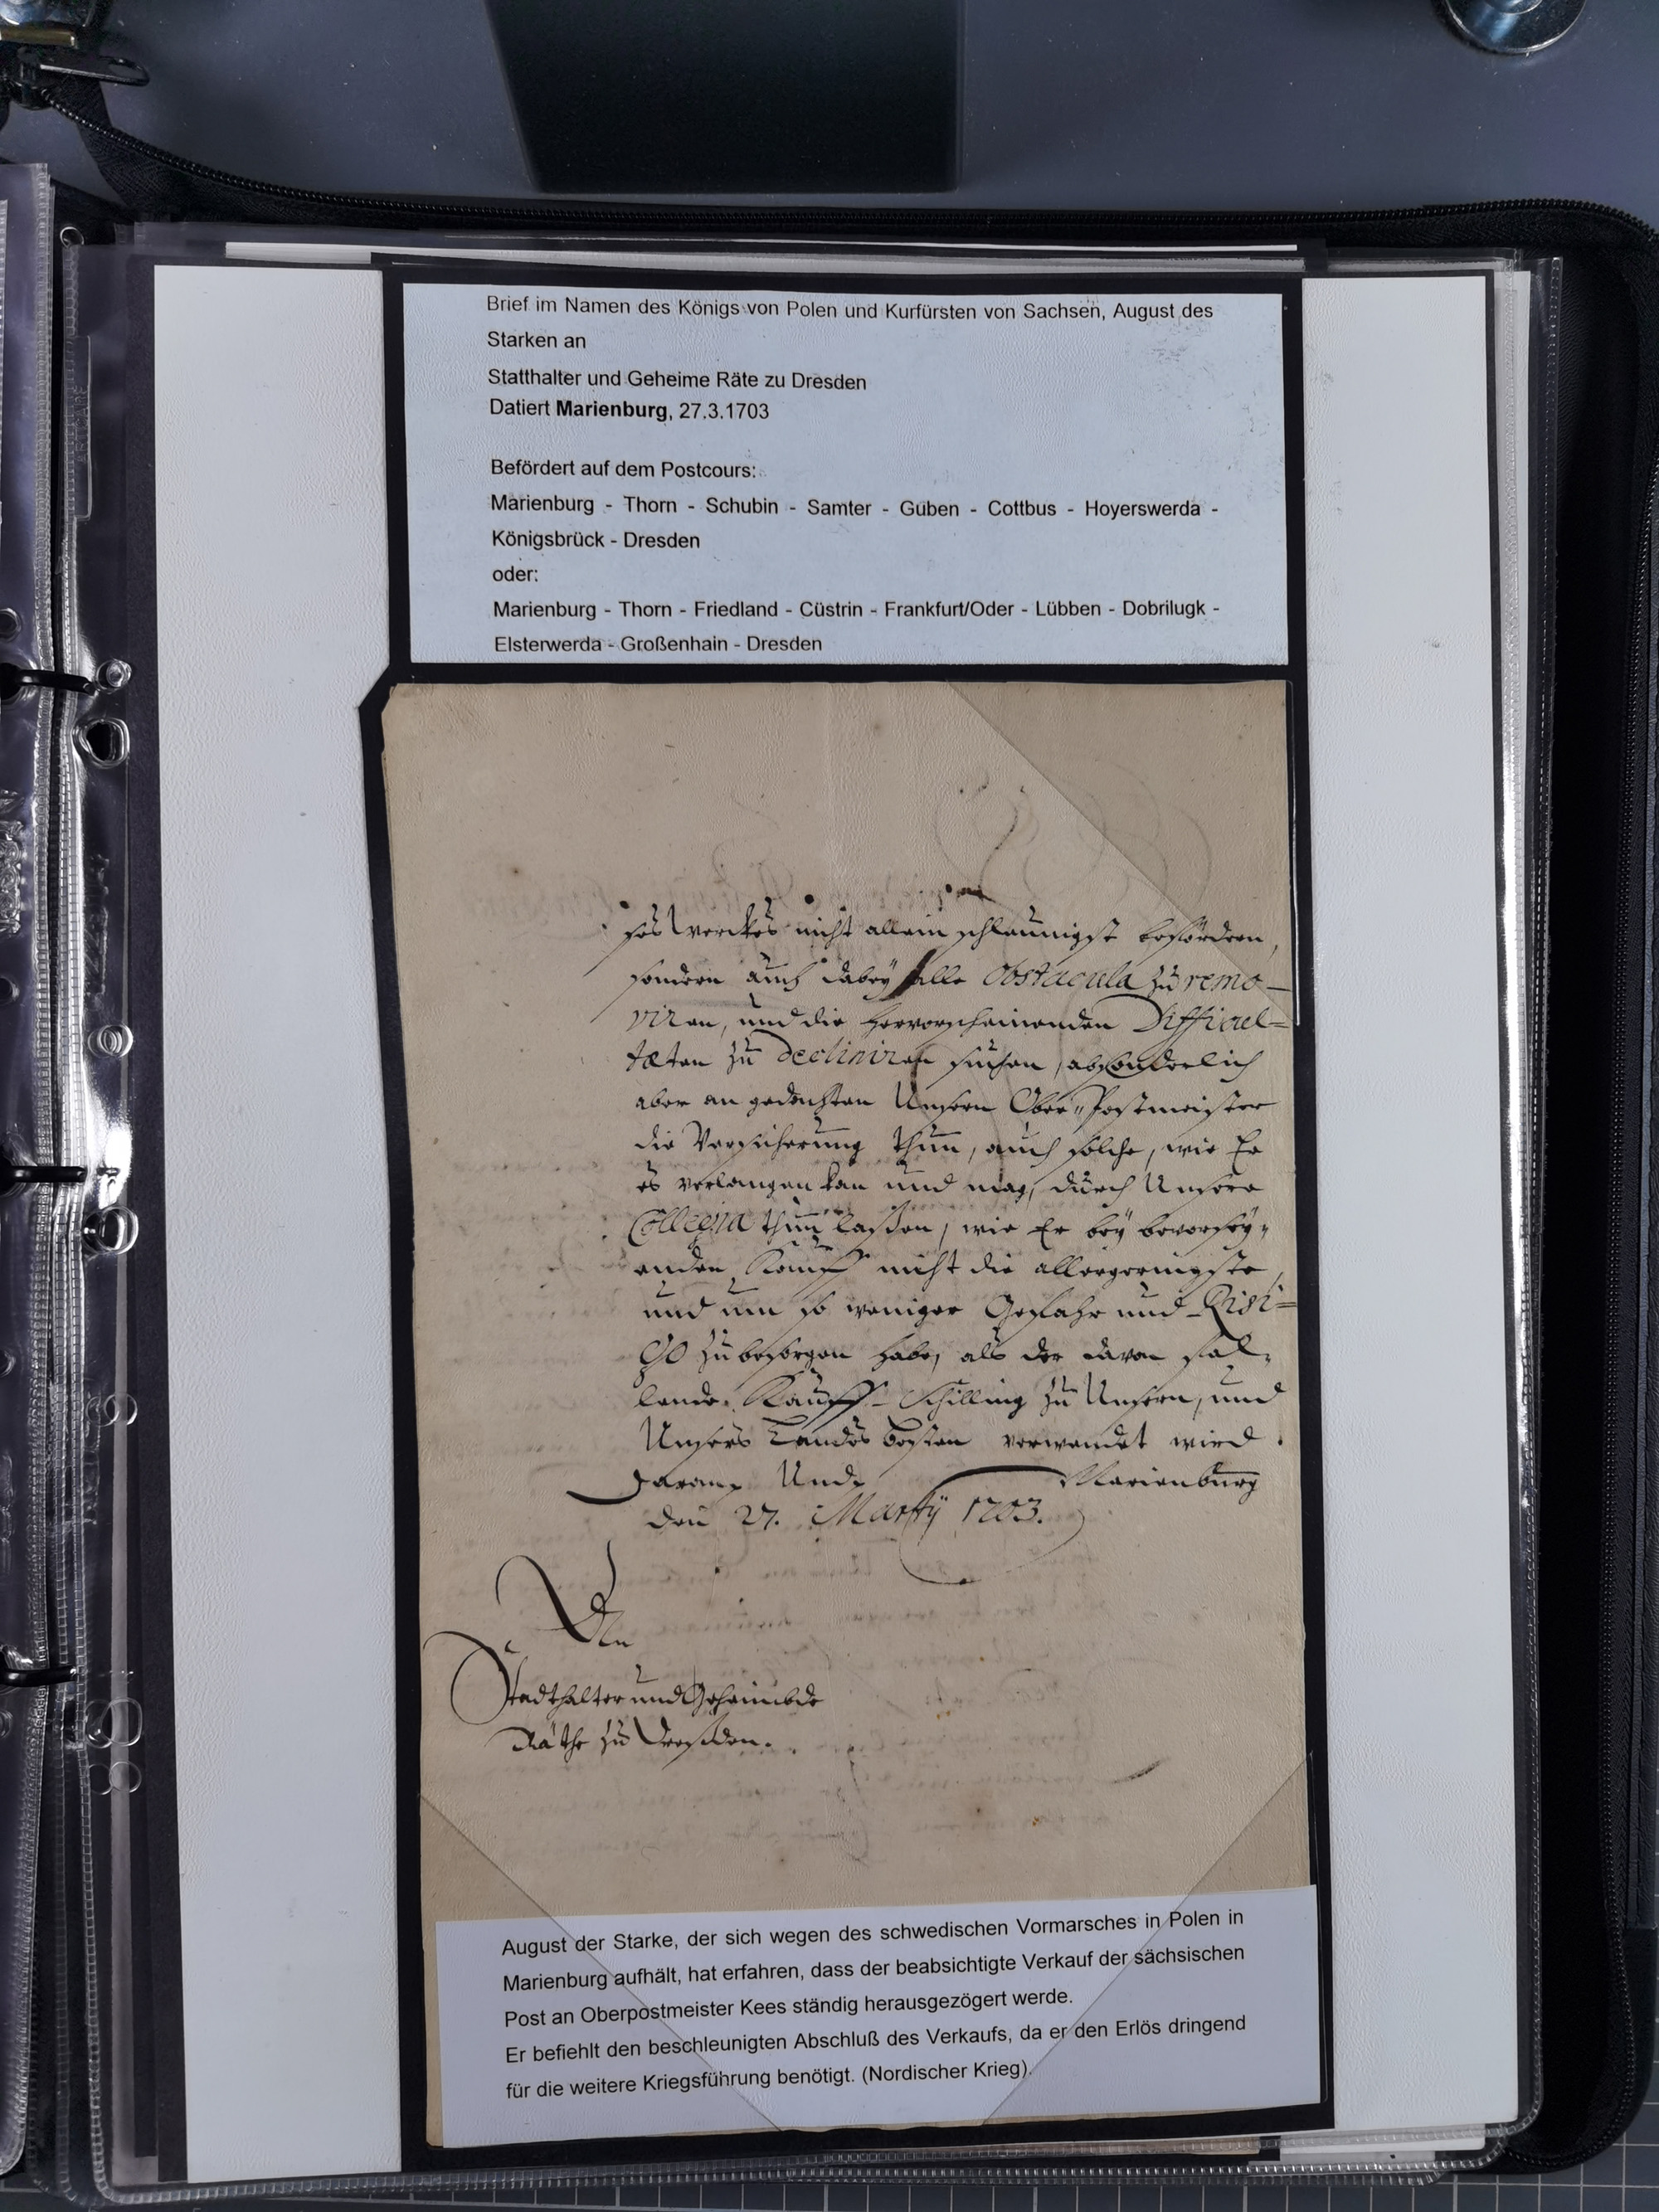 Brief im Namen des Königs von Polen und Kurfürsten von Sachsen, August des
Starken an
Statthalter und Geheime Räte zu Dresden
Datiert Marienburg, 27.3.1703
Befördert auf dem Postcours:
Marienburg - Thorn - Schubin - Samter - Guben - Cottbus - Hoyerswerda -
Königsbrück - Dresden
oder:
Marienburg - Thorn - Friedland - Cüstrin - Frankfurt/Oder - Lübben - Dobrilugk -
Elsterwerda - Großenhain - Dresden
ses Werckes nicht allein schleunigst befördern,
sondern auch dabey alle Obstacula zu remo-
viren, und die hervorscheinenden Difficul-
tæten zu decliniren suchen, absonderlich
aber an gedachten Unsern Ober-Postmeister
die Versicherung thun, auch solche, wie Er
es verlangen kan und mag, durch Unsere
Collegia thun laßen, wie Er bey bevorsey-
enden Kauff nicht die allergeringste,
und um so weniger Gefahr und Risi-
go zu besorgen habe, als der davon fal-
lende Kauff-Schilling zu Unsern, und
Unsers Landes besten verwendet wird.
Daran Und Marienburg
den 27. Martij 1703.
An
Stadthalter und Geheimbde
Räthe zu Dreßden.
August der Starke, der sich wegen des schwedischen Vormarsches in Polen in
Marienburg aufhält, hat erfahren, dass der beabsichtigte Verkauf der sächsischen
Post an Oberpostmeister Kees ständig herausgezögert werde.
Er befiehlt den beschleunigten Abschluß des Verkaufs, da er den Erlös dringend
für die weitere Kriegsführung benötigt. (Nordischer Krieg).